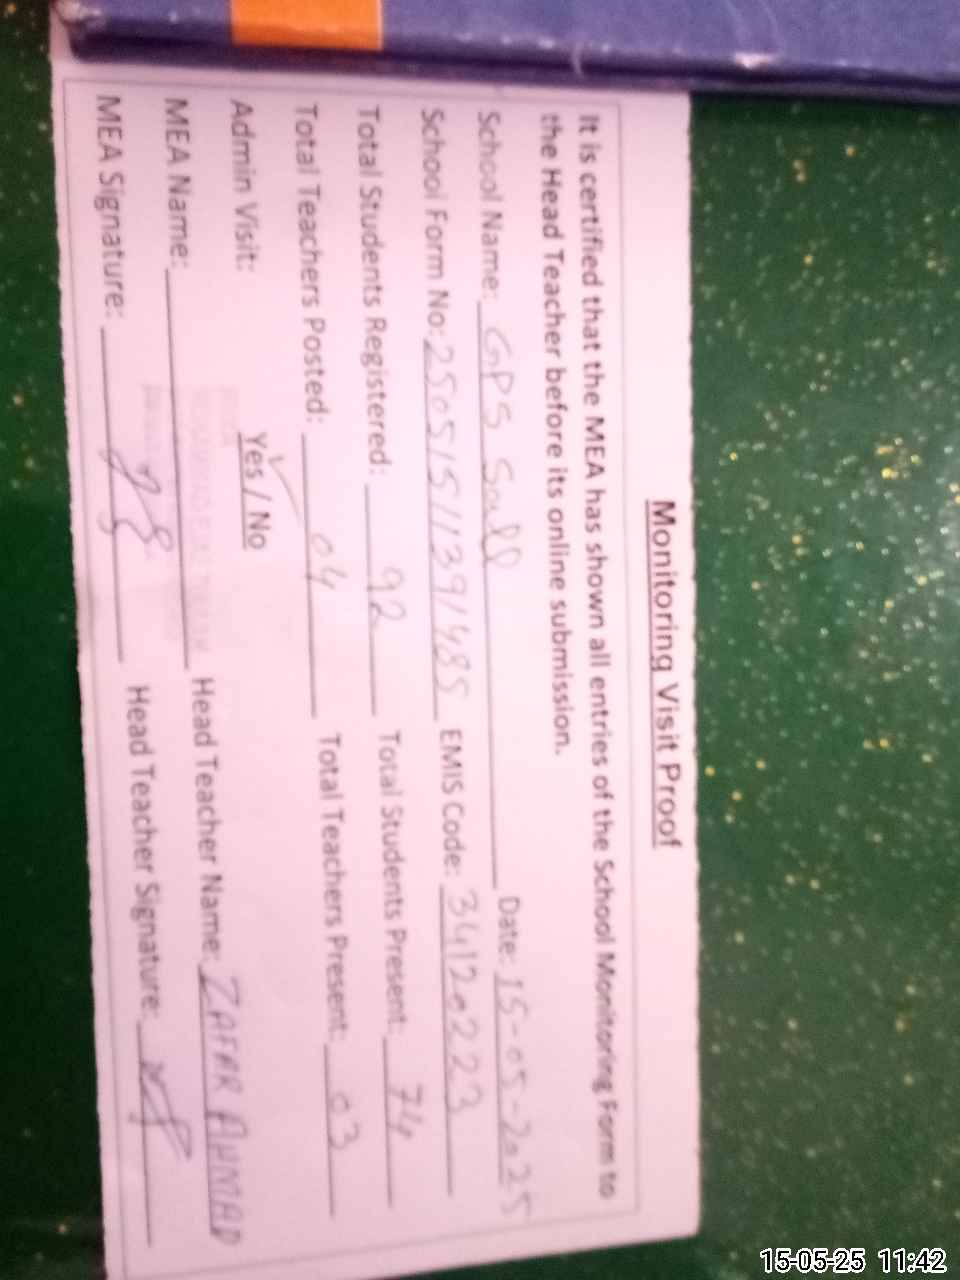 Monitoring Visit Proof
It is certified that the MEA has shown all entries of the School Monitoring Form to
the Head Teacher before its online submission.
School Name: GPS Date: 15-05-2025
School Form No: 25051511391485 EMIS Code: 34120223
Total Students Registered: 92 Total Students Present: 74
Total Teachers Posted: 04 Total Teachers Present: 03
Admin Visit: Yes / No
MEA Name: Head Teacher Name: ZAFAR AHMAD
MEA Signature: Head Teacher Signature:
15-05-25 11:42